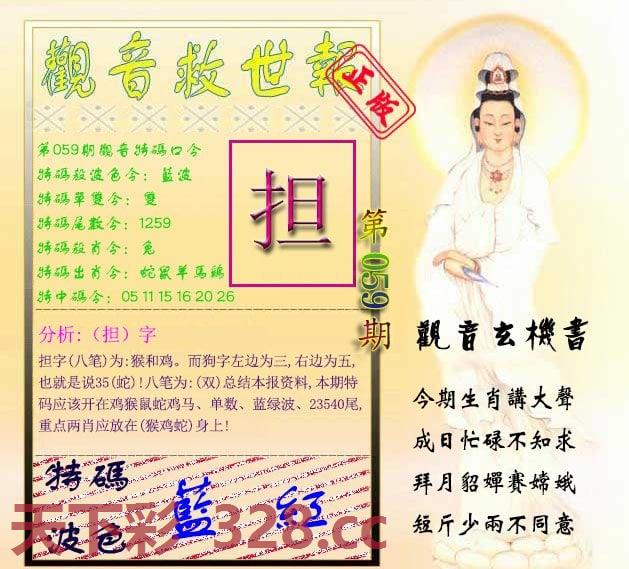 觀音救世報
正版
第059期觀音特碼口令
特碼殺波色令：藍波
特碼單雙令：雙
特碼尾數令：1259
特碼殺肖令：兔
特碼出肖令：蛇鼠羊馬鷄
特中碼令：05 11 15 16 20 26
担
第059期
分析:（担）字
担字(八笔)为:猴和鸡。而狗字左边为三,右边为五,
也就是说35(蛇)!八笔为:(双)总结本报资料,本期特
码应该开在鸡猴鼠蛇鸡马、单数、蓝绿波、23540尾,
重点两肖应放在(猴鸡蛇)身上!
特碼
波色
藍 紅
天下彩 1328.cc
觀音玄機書
今期生肖講大聲
成日忙碌不知求
拜月貂嬋賽嫦娥
短斤少兩不同意